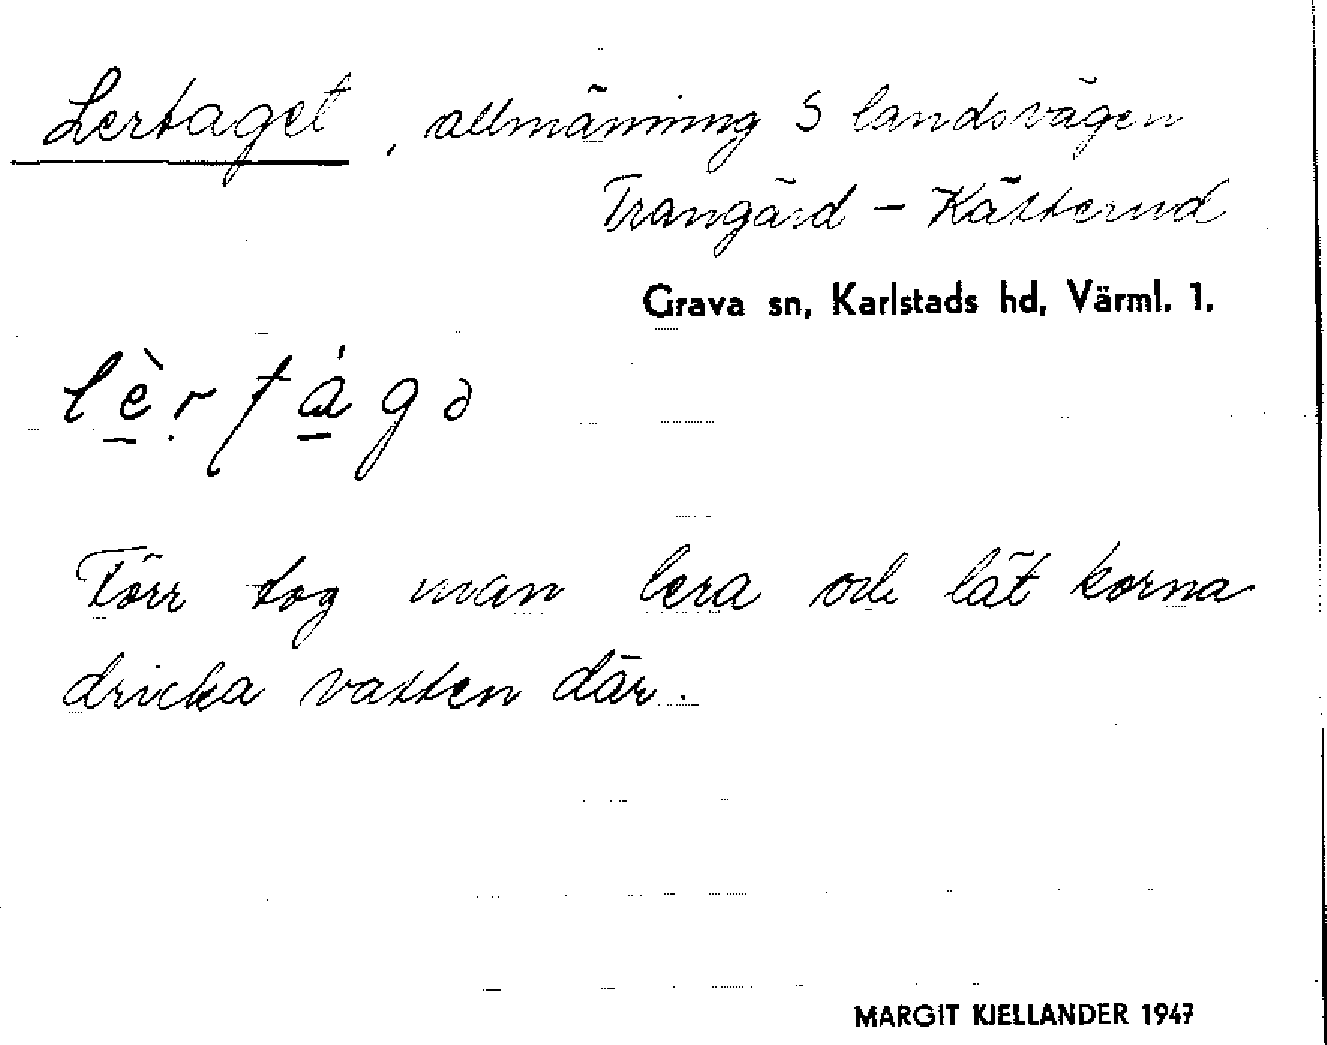 Lertaget, allmänning S landsvägen
Trangärd - Kätterud
Grava sn, Karlstads hd, Värml. 1.
lèrtágə
Förr tog man lera och lät korna
dricka vatten där.
MARGIT KJELLANDER 1947